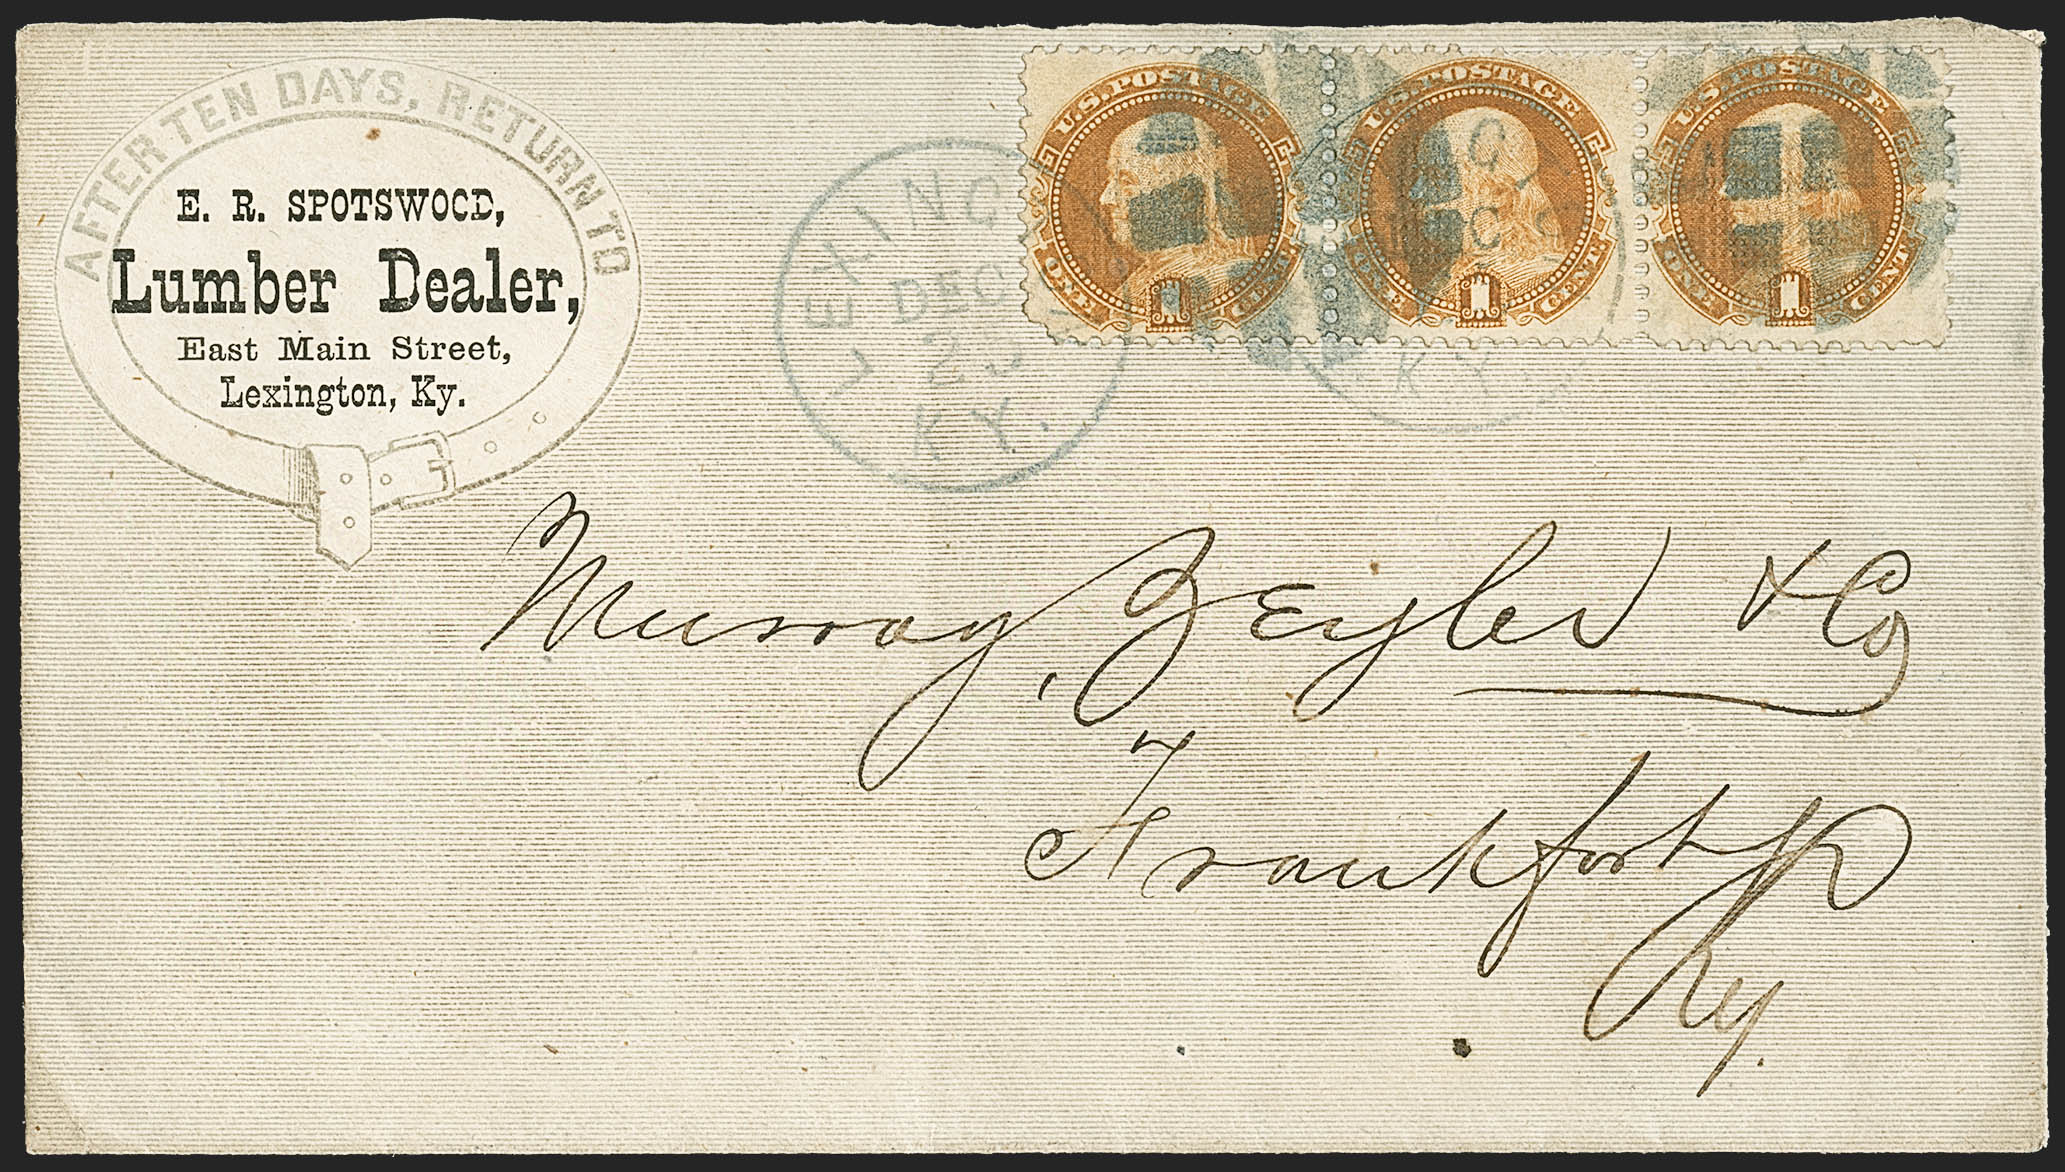 AFTER TEN DAYS, RETURN TO
E. R. SPOTSWOOD,
Lumber Dealer,
East Main Street,
Lexington, Ky.
LEXING
DEC
KY.
U.S. POSTAGE
ONE 1 CENT.
U.S. POSTAGE
ONE 1 CENT.
U.S. POSTAGE
ONE 1 CENT.
KY.
Murray, Zeigler & Co
Frankfort
Ky.